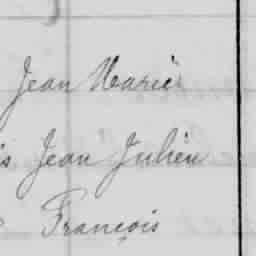 Jean Marie
Jean Julien
François